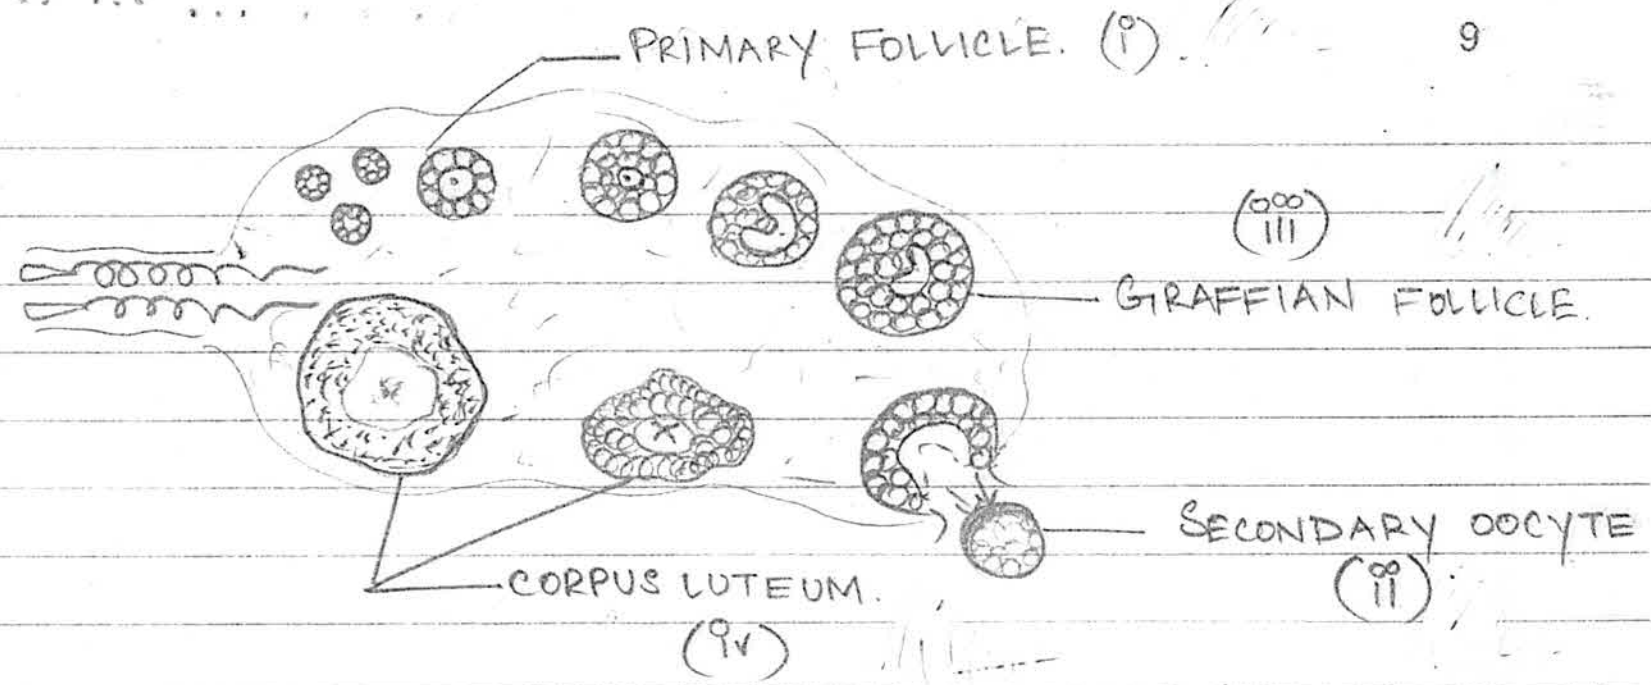 PRIMARY FOLLICLE. (i).
9
(iii)
GRAFFIAN FOLLICLE.
SECONDARY OOCYTE
(ii)
CORPUS LUTEUM.
(iv)